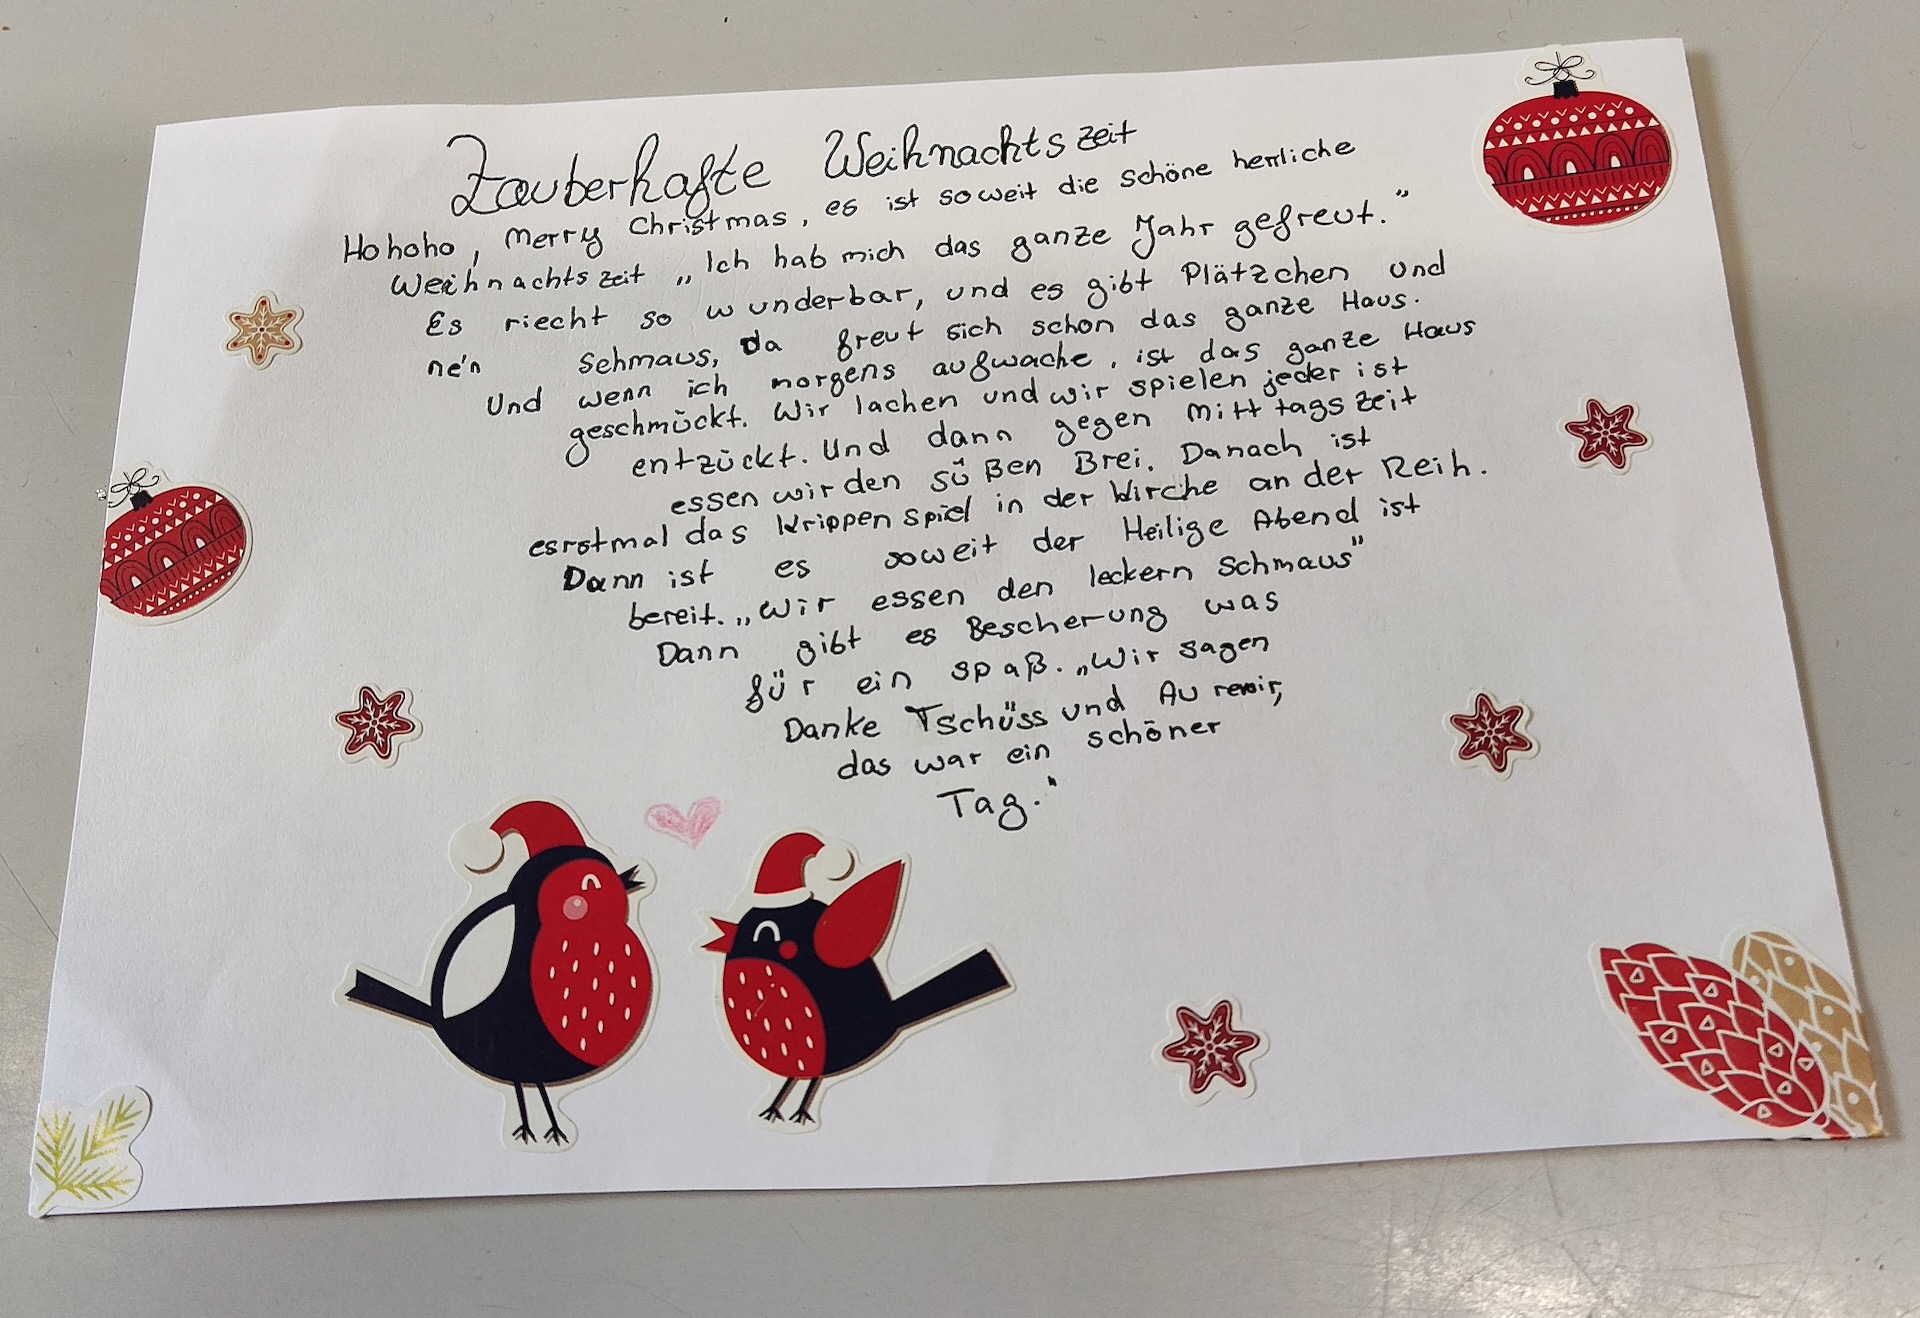 Zauberhafte Weihnachtszeit
Hohoho, Merry Christmas, es ist soweit die schöne herrliche
Weihnachtszeit „Ich hab mich das ganze Jahr gefreut."
Es riecht so wunderbar, und es gibt Plätzchen und
ne'n Schmaus, da freut sich schon das ganze Haus.
Und wenn ich morgens aufwache, ist das ganze Haus
geschmückt. Wir lachen und wir spielen jeder ist
entzückt. Und dann gegen Mitttagszeit
essen wir den süßen Brei. Danach ist
esrstmal das Krippenspiel in der Kirche an der Reih.
Dann ist es soweit der Heilige Abend ist
bereit. „Wir essen den leckern Schmaus"
Dann gibt es Bescherung was
für ein spaß. „Wir sagen
Danke Tschüss und Au revoir,
das war ein schöner
Tag."